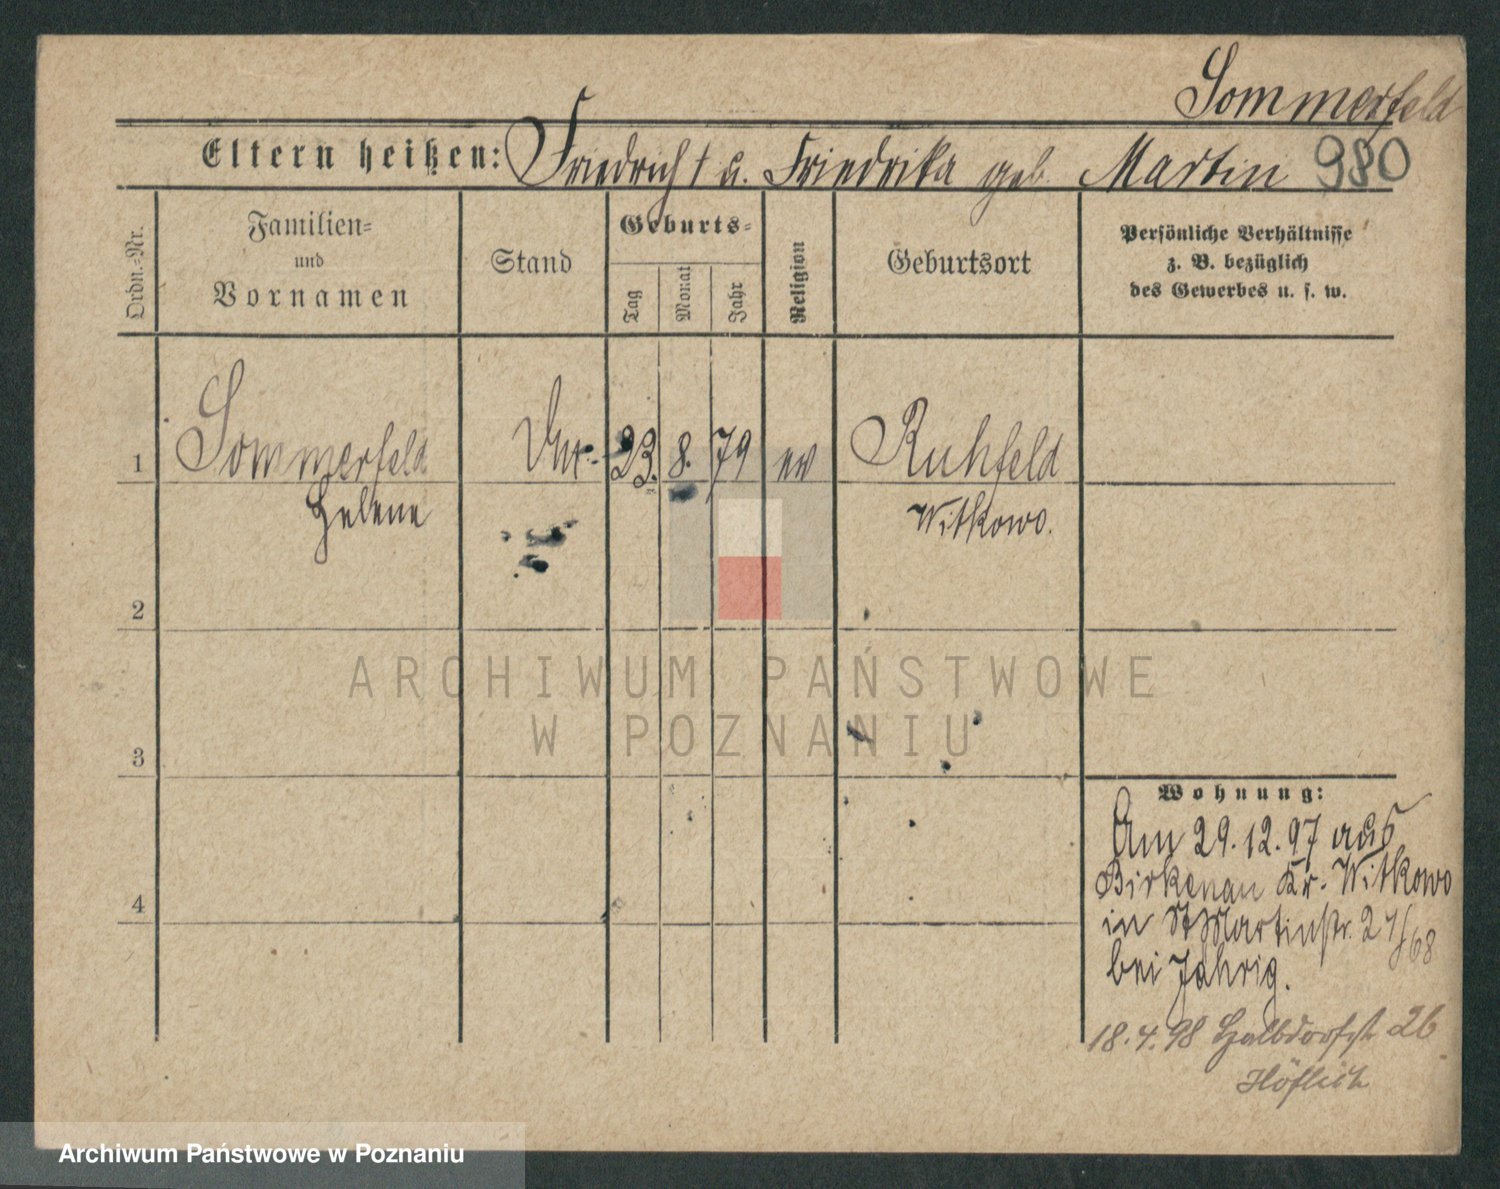 Sommerfeld
Eltern heißen: Friedrich † u. Friedrika geb. Martin 980
Ordn.-Nr.
Familien-
und
Vornamen
Stand
Geburts-
Tag
Monat
Jahr
Religion
Geburtsort
Persönliche Verhältnisse
z. B. bezüglich
des Gewerbes u. s. w.
1 Sommerfeld 23. 8. 79 ev Ruhfeld
Helene Witkowo.
2
3
4
Wohnung:
Am 29.12.97 aus
Birkenau Kr. Witkowo
in St Martinstr. 24/68
bei Jährig.
18.4.98 Halbdorfstr 26
Höflich
ARCHIWUM PAŃSTWOWE
W POZNANIU
Archiwum Państwowe w Poznaniu